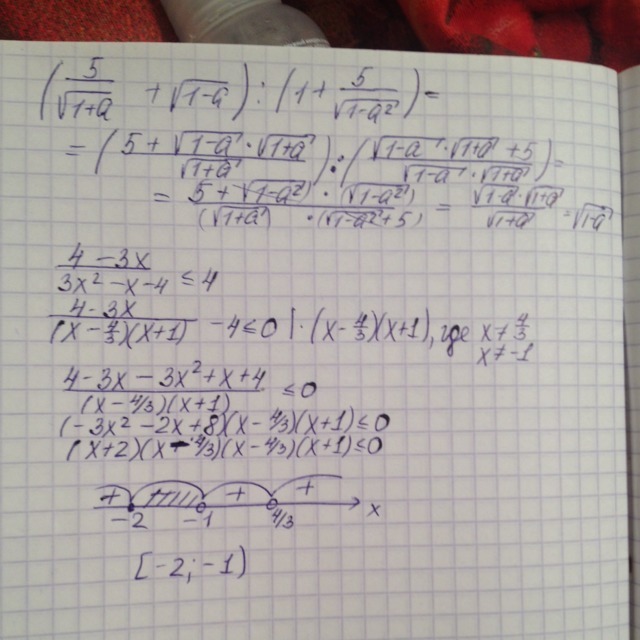 (5/√1+a + √1-a) : (1 + 5/√1-a²) =
= (5 + √1-a · √1+a / √1+a) : (√1-a · √1+a + 5 / √1-a · √1+a) =
= 5 + √1-a²) · (√1-a²) / (√1+a) · (√1-a² + 5) = √1-a · √1+a / √1+a = √1-a
4 - 3x / 3x² - x - 4 ≤ 4
4 - 3x / (x - 4/3)(x + 1) - 4 ≤ 0 | · (x - 4/3)(x + 1), где x ≠ 4/3
x ≠ -1
4 - 3x - 3x² + x + 4 / (x - 4/3)(x + 1) ≤ 0
(-3x² - 2x + 8)(x - 4/3)(x + 1) ≤ 0
(x + 2)(x - 4/3)(x - 4/3)(x + 1) ≤ 0
+ + +
-2 -1 4/3 x
[-2; -1)